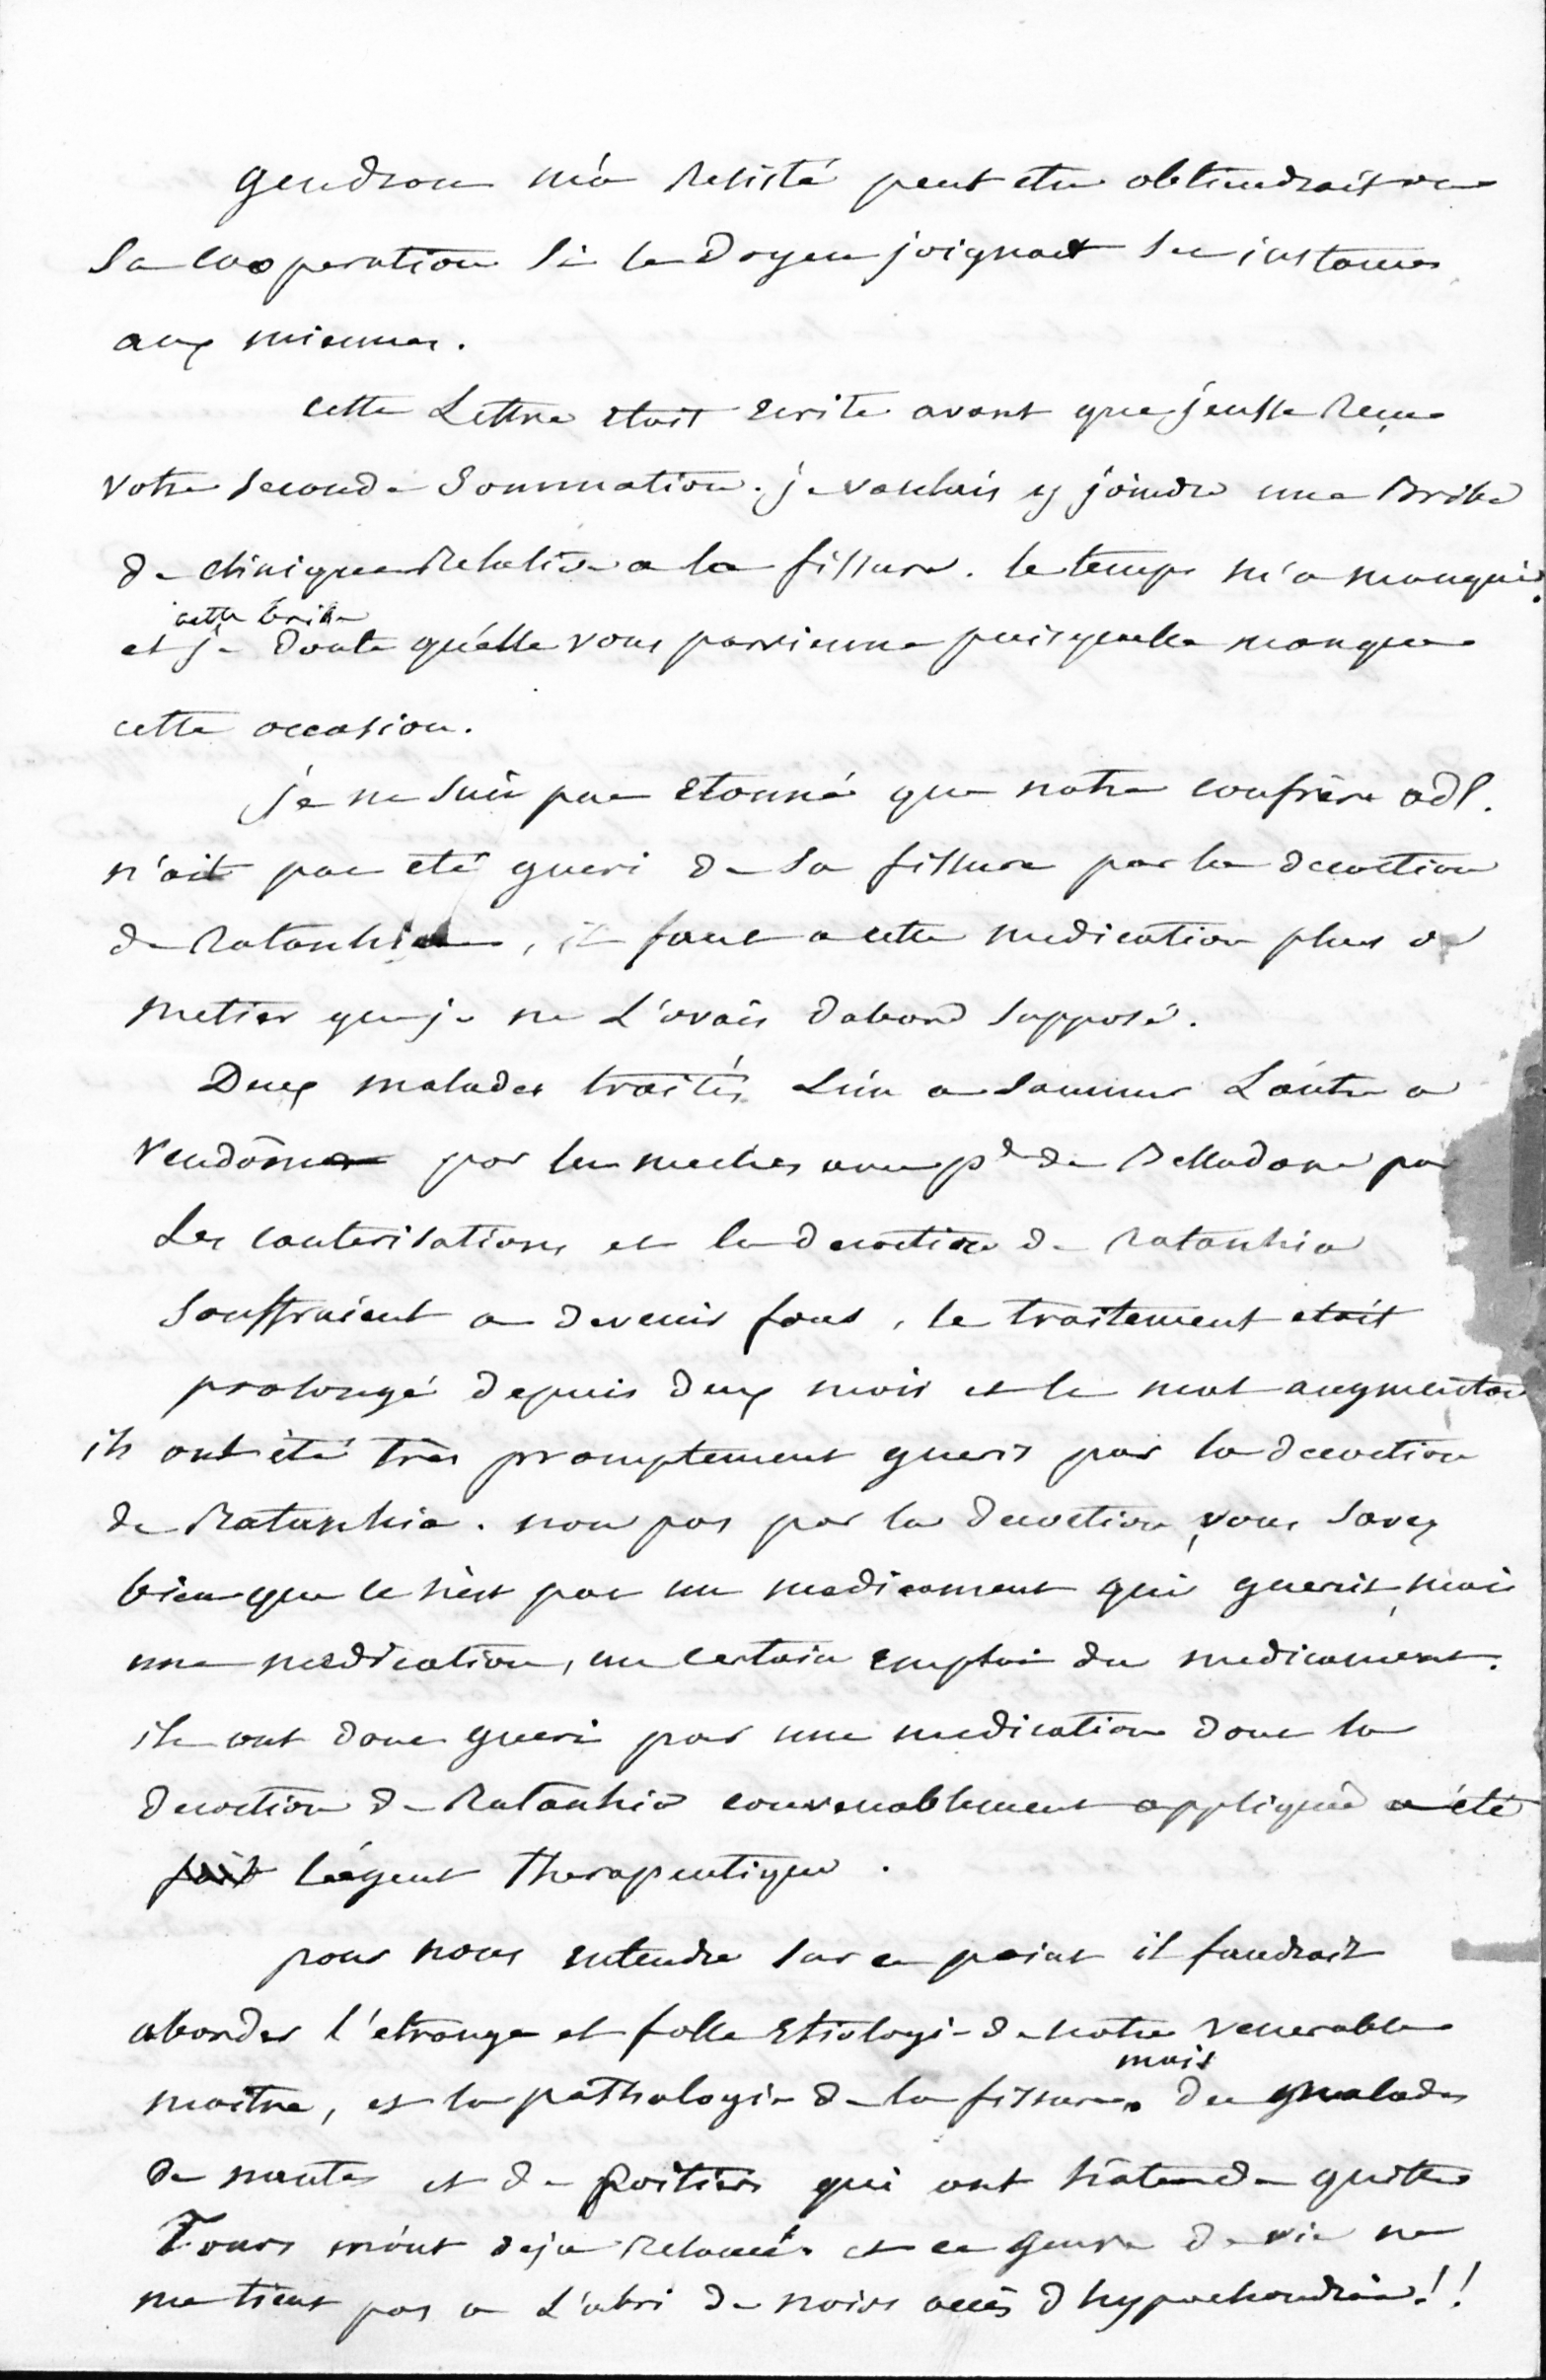 gendron m'a resisté peut etre obtiendrait on
sa cooperation si le Doyen joignait ses instances
aux miennes.
cette Lettre etait ecrite avant que j'eusse reçue
votre seconde sommation. je voulais y joindre une Bribe
de clinique relative a la fissure. le temps m'a manqué.
cette bribe
et je doute qu'elle vous parvienne puisquelle manque
cette occasion.
je ne suis pas etonné que notre confrère adl.
n'ait pas eté gueri de sa fissure par la decoction
de Ratanhia, il faut a cette medication plus de
metier que je ne L'avais dabord supposé.
Deux malades traités L'un a Saumur L'autre a
Vendôme par les meches avec pde de Belladone par
Les cauterisations et la decoction de ratanhia
souffraient a devenir fous, le traitement etait
prolongé depuis deux mois et le mal augmentait
ils ont été très promptement gueris par la decoction
de Ratanhia. non pas par la decoction, vous savez
bien que ce n'est pas un medicament qui guerit, mais
une medication, un certain emploi du medicament.
ils ont donc gueri par une medication dont la
decoction de Ratanhia convenablement appliqué a été
fait l'agent Therapeutique.
pour nous entendre sur ce point il faudrait
aborder l'etrange et folle Etiologie de notre venerable
maitre, et la pathologie de la fissure.
mais
des malades
de nantes et de Poitiers qui ont hate de quitter
Tours m'ont deja relancé. et ce genre de vie ne
me tient pas a L'abri de noirs accès d hypochondrie!!